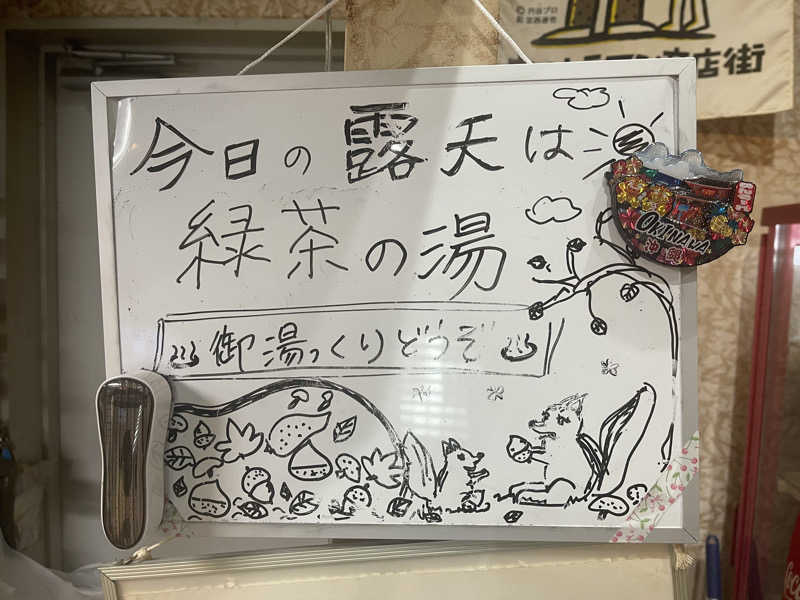 今日の露天は
緑茶の湯
御湯っくりどうぞ
OKINAWA
沖縄
©円谷プロ
店街